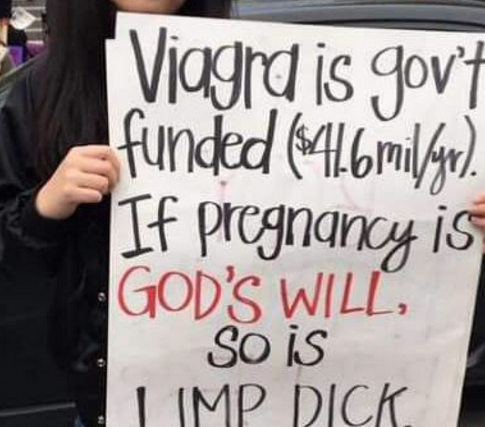 Viagra is gov't
funded ($41.6mil/yr).
If pregnancy is
GOD'S WILL,
SO iS
LIMP DICK.